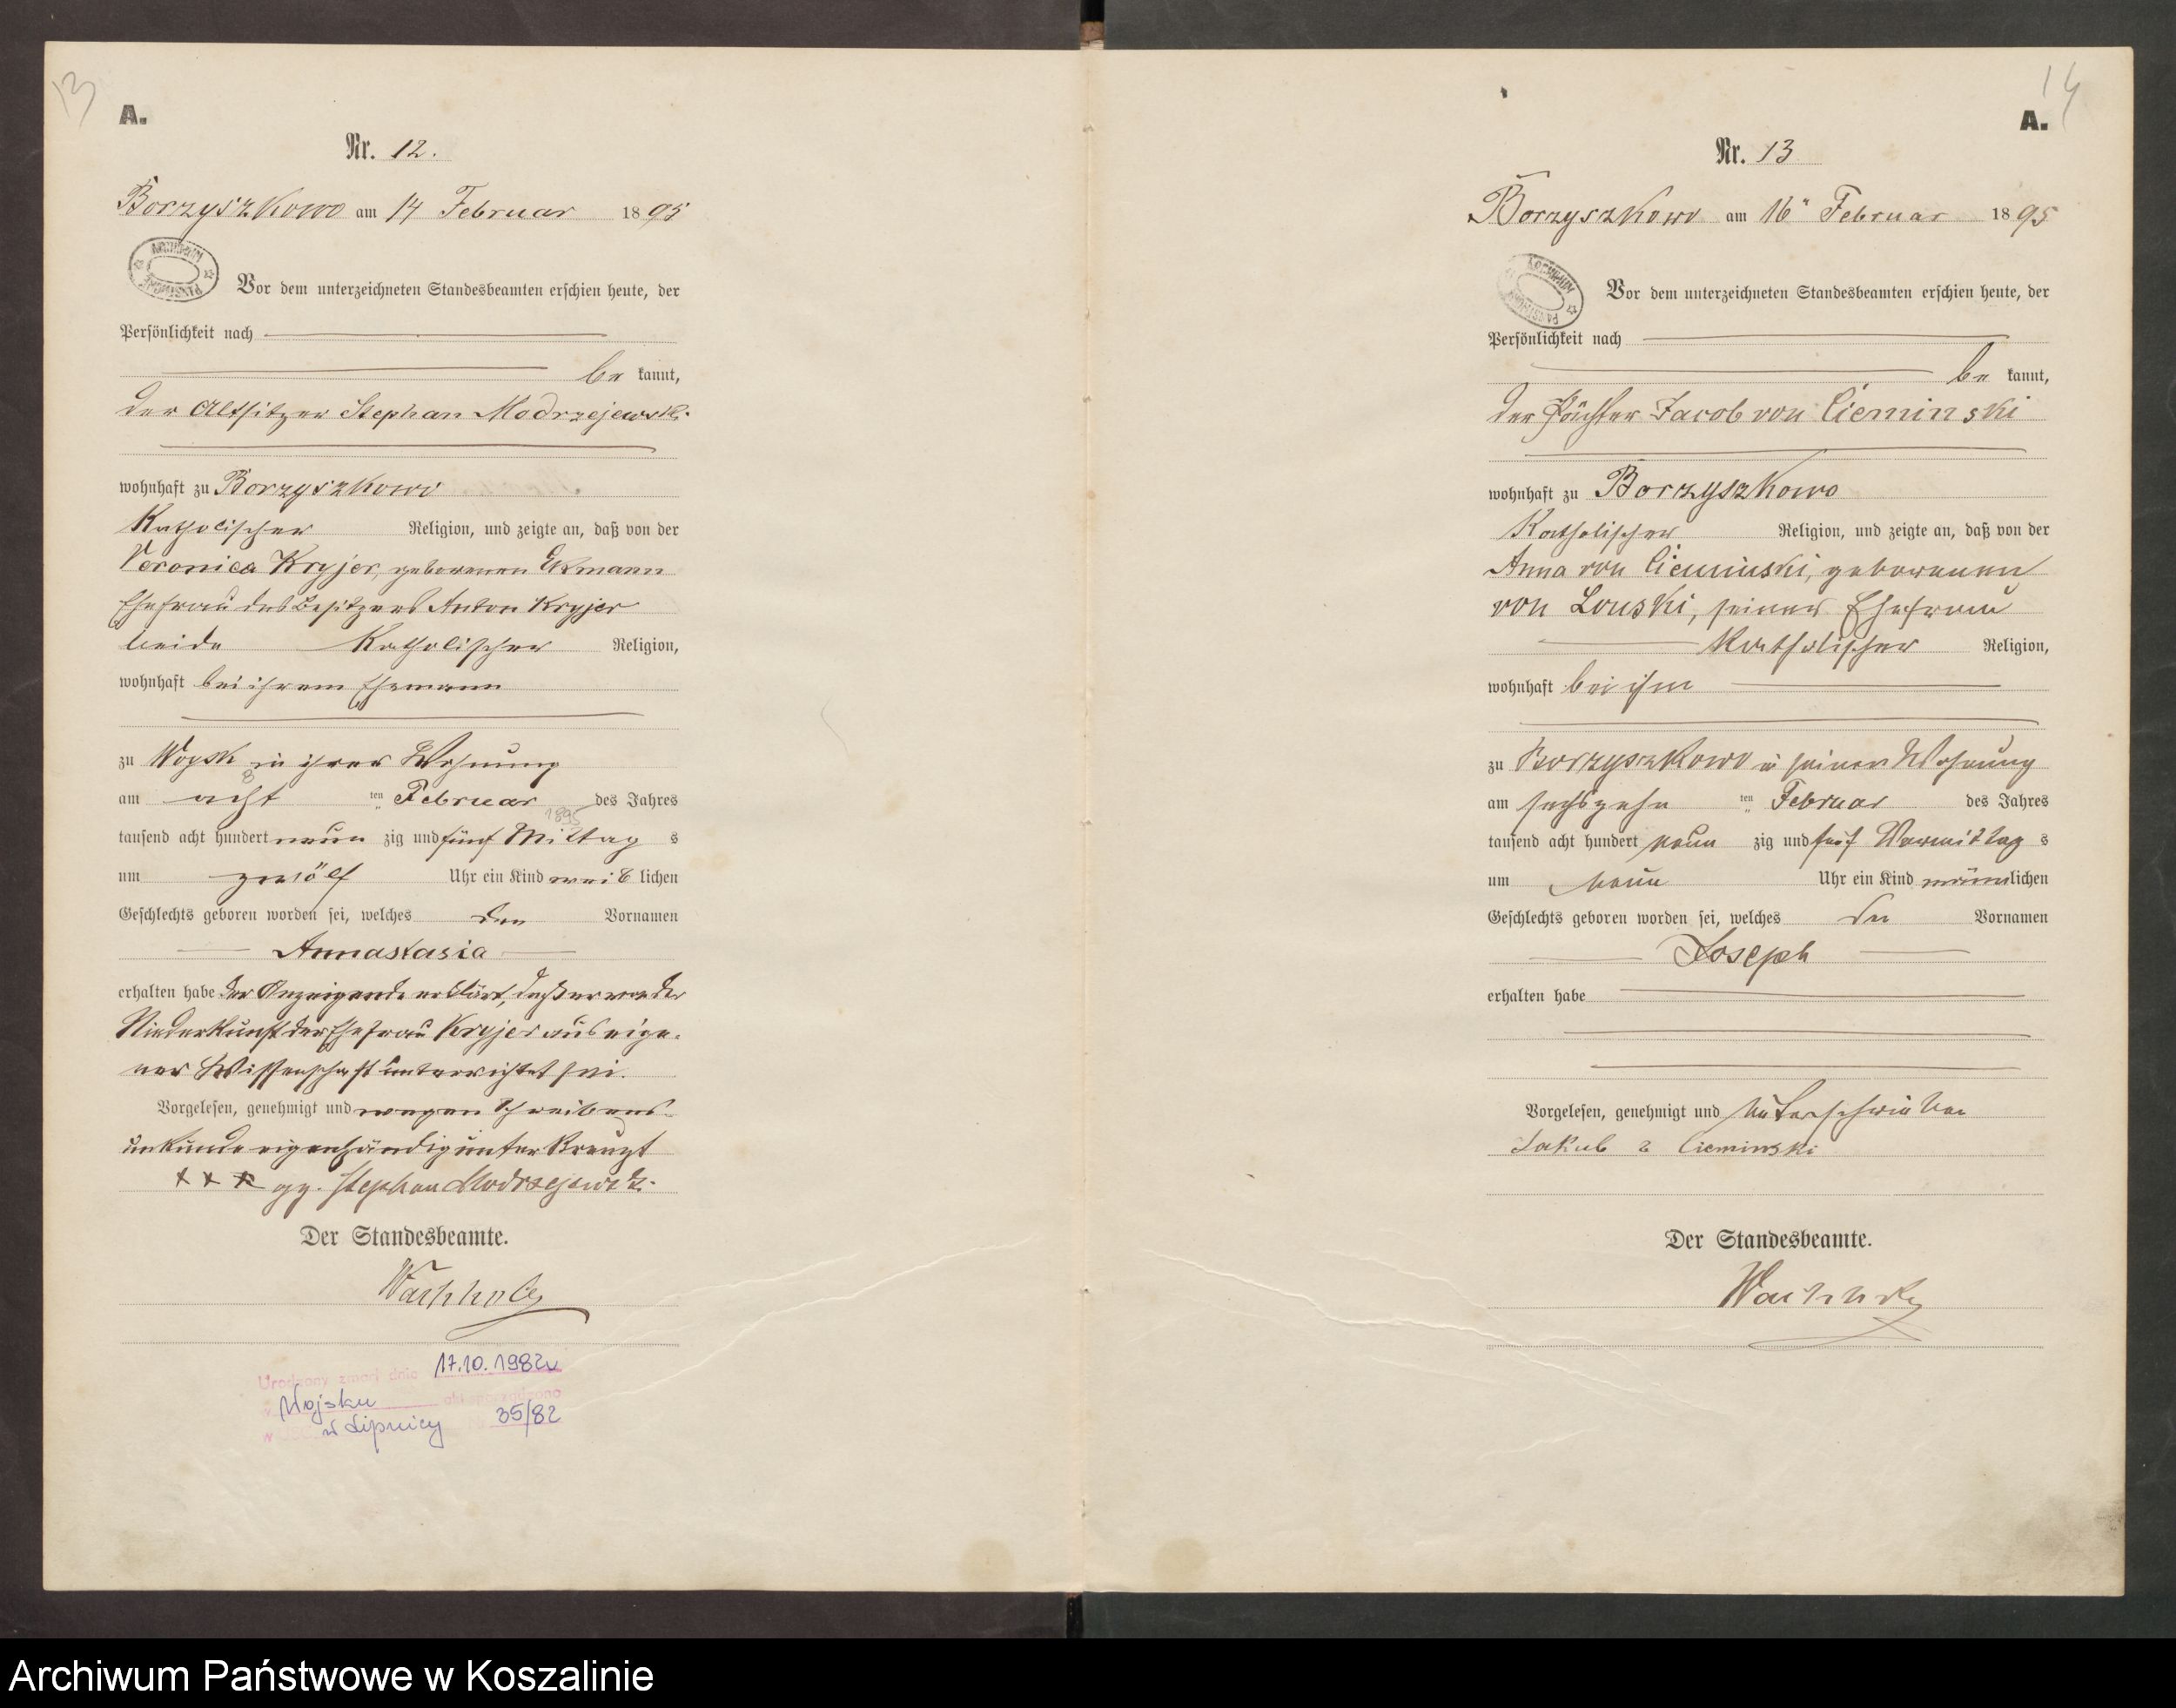 13
A.
Nr. 12.
Borzyszkowo am 14 Februar 1895
ARCHIWUM PAŃSTWOWE
Vor dem unterzeichneten Standesbeamten erschien heute, der
Persönlichkeit nach
be kannt,
der Altsitzer Stephan Modrzejewski
wohnhaft zu Borzyszkowo
Katholischer Religion, und zeigte an, daß von der
Veronica Kryjer, geborenen Ekmann
Ehefrau des Besitzers Anton Kryjer
beide Katholischer Religion,
wohnhaft bei ihrem Ehemann
zu Woysk in ihrer Wohnung
8
am acht ten Februar des Jahres
1895
tausend acht hundert neun zig und fünf Mittag s
um zwölf Uhr ein Kind weib lichen
Geschlechts geboren worden sei, welches den Vornamen
Annastasia
erhalten habe der Anzeigende erklärt, daß er von der
Niederkunft der Ehefrau Kryjer aus eige-
ner Wissenschaft unterrichtet sei.
Vorgelesen, genehmigt und wegen Schreibens-
unkunde eigenhändig unterkreuzt
+ + + gg. Stephan Modrzejewski
Der Standesbeamte.
Wachholz
Urodzony zmarł dnia 17.10.1982
w Wojsku akt sporządzono
w Lipnicy 35/82
14
A.
Nr. 13
Borzyszkowo am 16" Februar 1895
ARCHIWUM PAŃSTWOWE
Vor dem unterzeichneten Standesbeamten erschien heute, der
Persönlichkeit nach
be kannt,
der Pächter Jacob von Cieminski
wohnhaft zu Borzyszkowo
Katholischer Religion, und zeigte an, daß von der
Anna von Cieminski, geborenen
von Louski, seiner Ehefrau
Katholischer Religion,
wohnhaft bei ihm
zu Borzyszkowo in seiner Wohnung
am sechszehn ten Februar des Jahres
tausend acht hundert neun zig und fünf Vormittag s
um neun Uhr ein Kind männlichen
Geschlechts geboren worden sei, welches den Vornamen
Joseph
erhalten habe
Vorgelesen, genehmigt und unterschrieben
Jakub Cieminski
Der Standesbeamte.
Wachholz
Archiwum Państwowe w Koszalinie